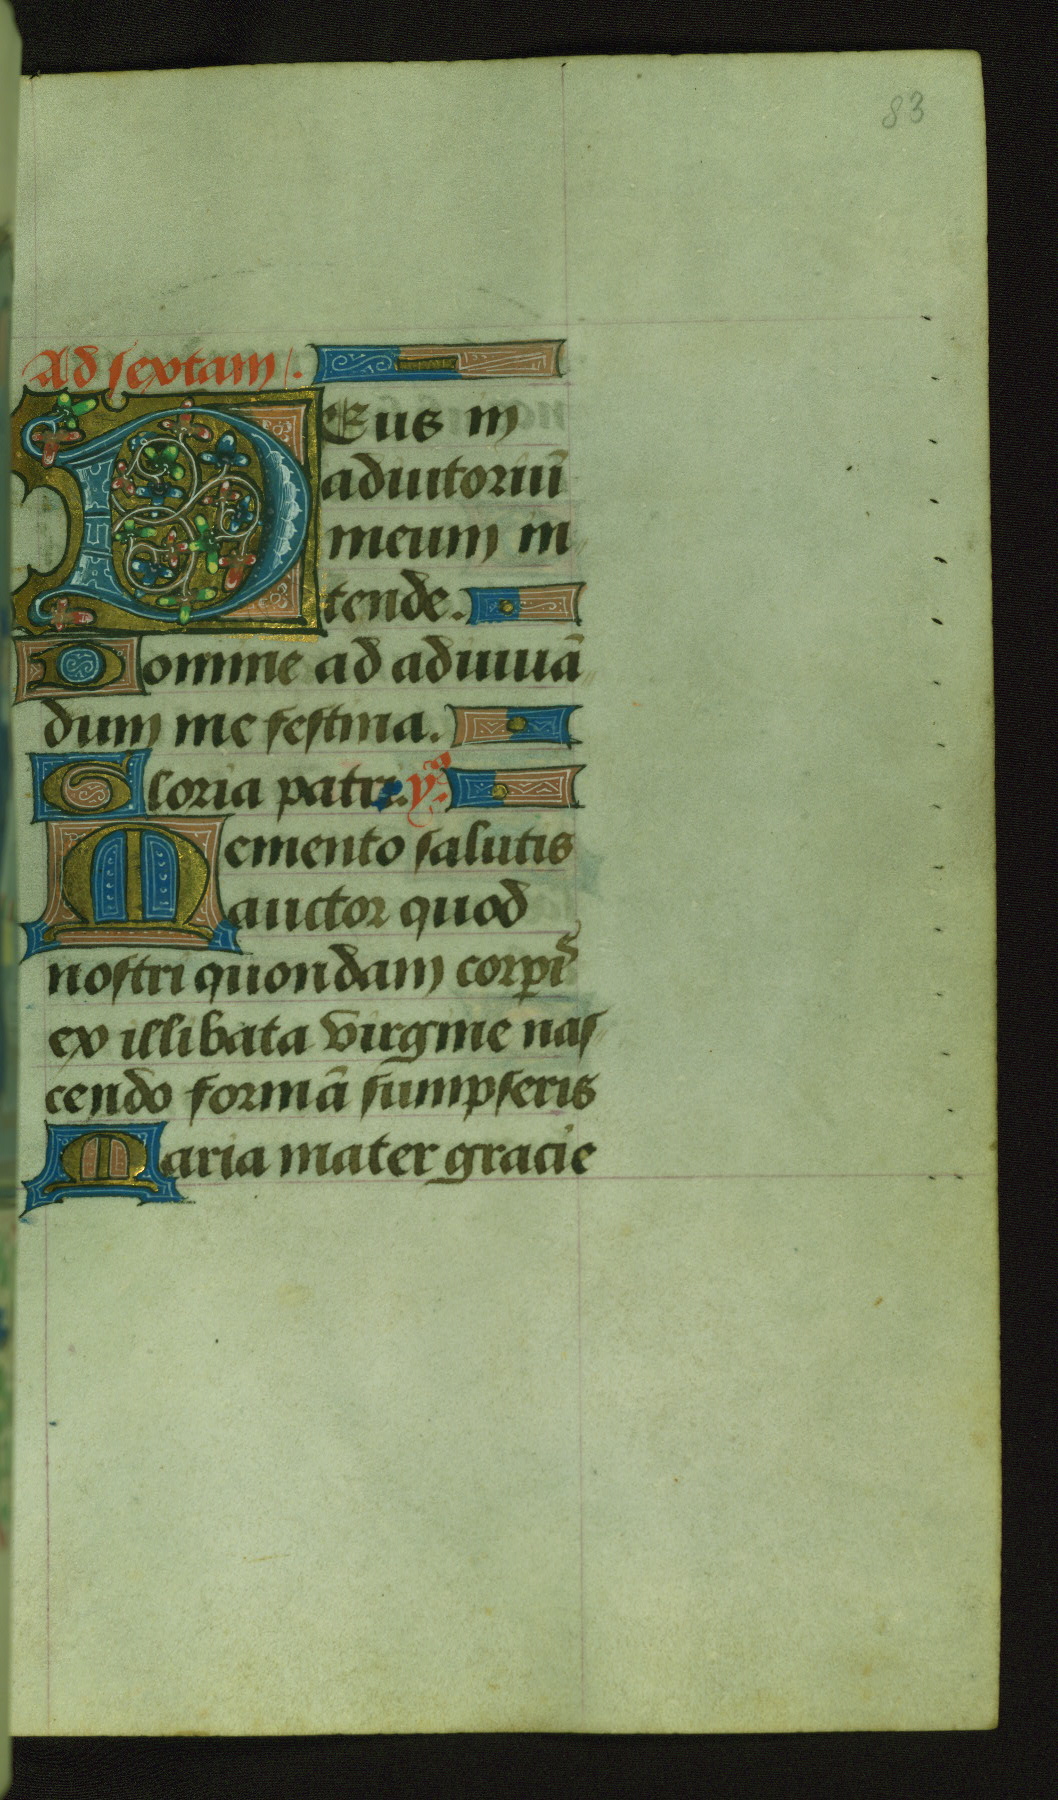 83
Ad sextam.
DEus in
adiutoriū
meum in
tende.
Domine ad adiuuā
dum me festina.
Gloria patri. ym̄
Memento salutis
auctor quod
nostri quondam corpis
ex illibata virgine nas
cendo formā sumpseris
Maria mater gracie